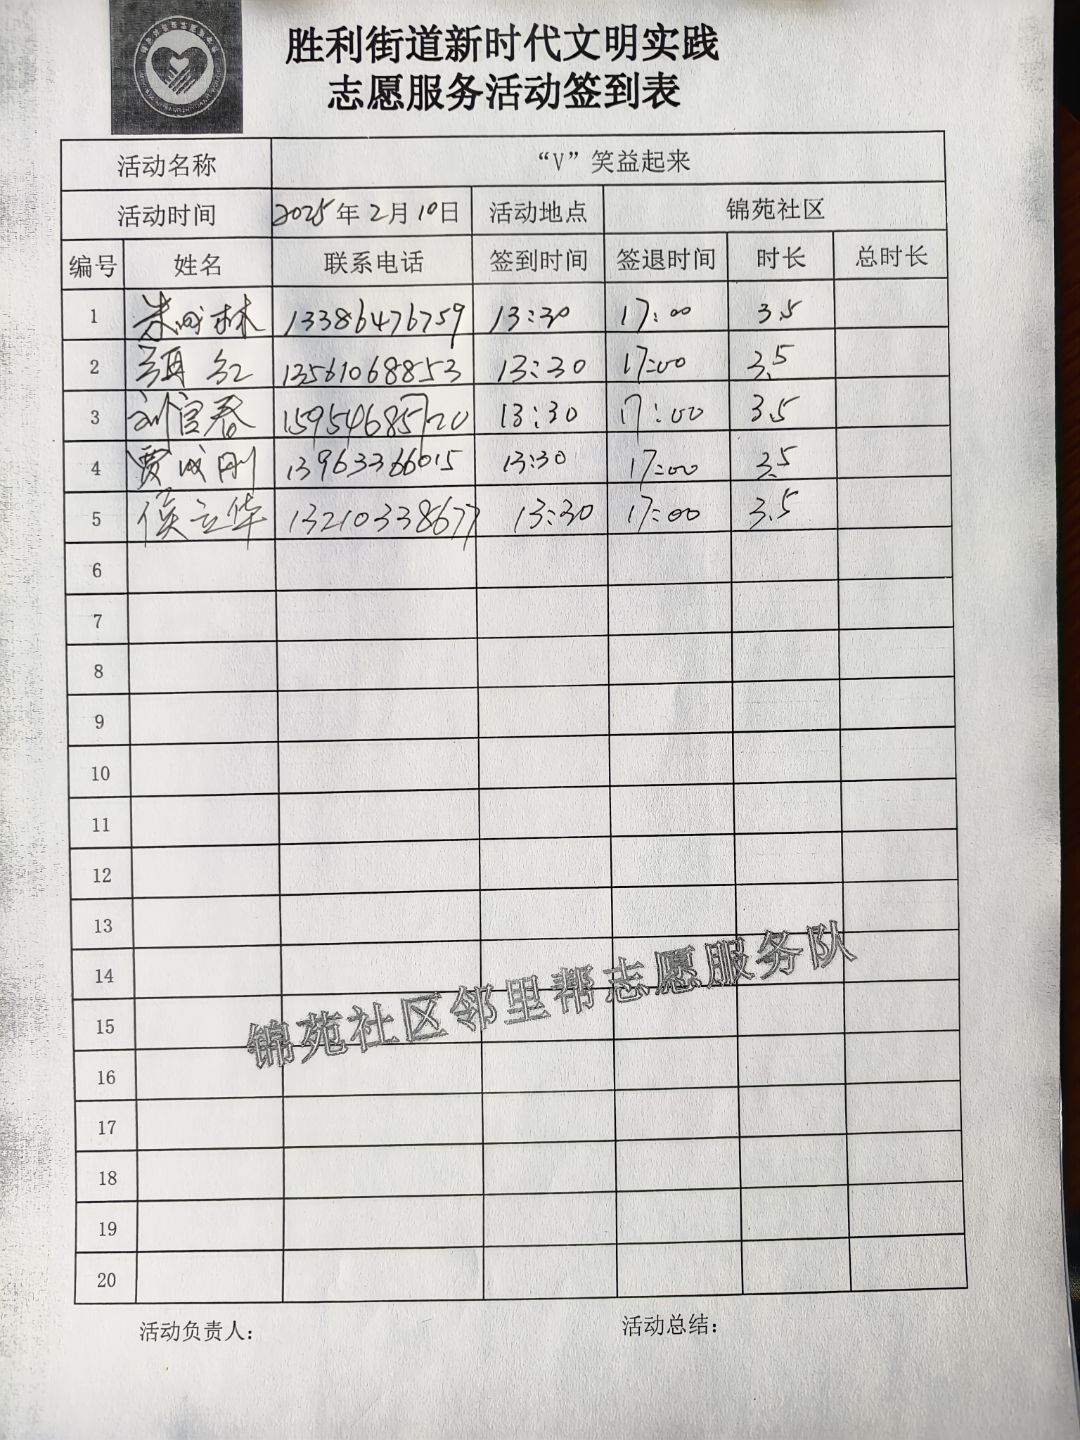 胜利街道新时代文明实践
志愿服务活动签到表
活动名称 “V”笑益起来
活动时间 2025年2月10日 活动地点 锦苑社区
编号 姓名 联系电话 签到时间 签退时间 时长 总时长
1 林 13386476759 13:30 17:00 3.5
2 红 13561068853 13:30 17:00 3.5
3 刘宜春 15954685720 13:30 17:00 3.5
4 贾成刚 13963366015 13:30 17:00 3.5
5 侯立华 13210338677 13:30 17:00 3.5
6
7
8
9
10
11
12
13
14
15
16
17
18
19
20
锦苑社区邻里帮志愿服务队
活动负责人： 活动总结：